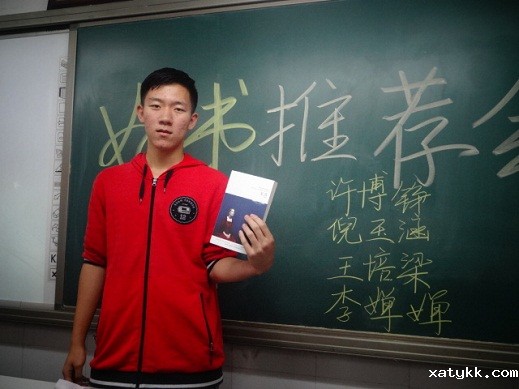 好书推荐会
许博铮
倪玉涵
王培梁
李婵婵
www.xatykk.com